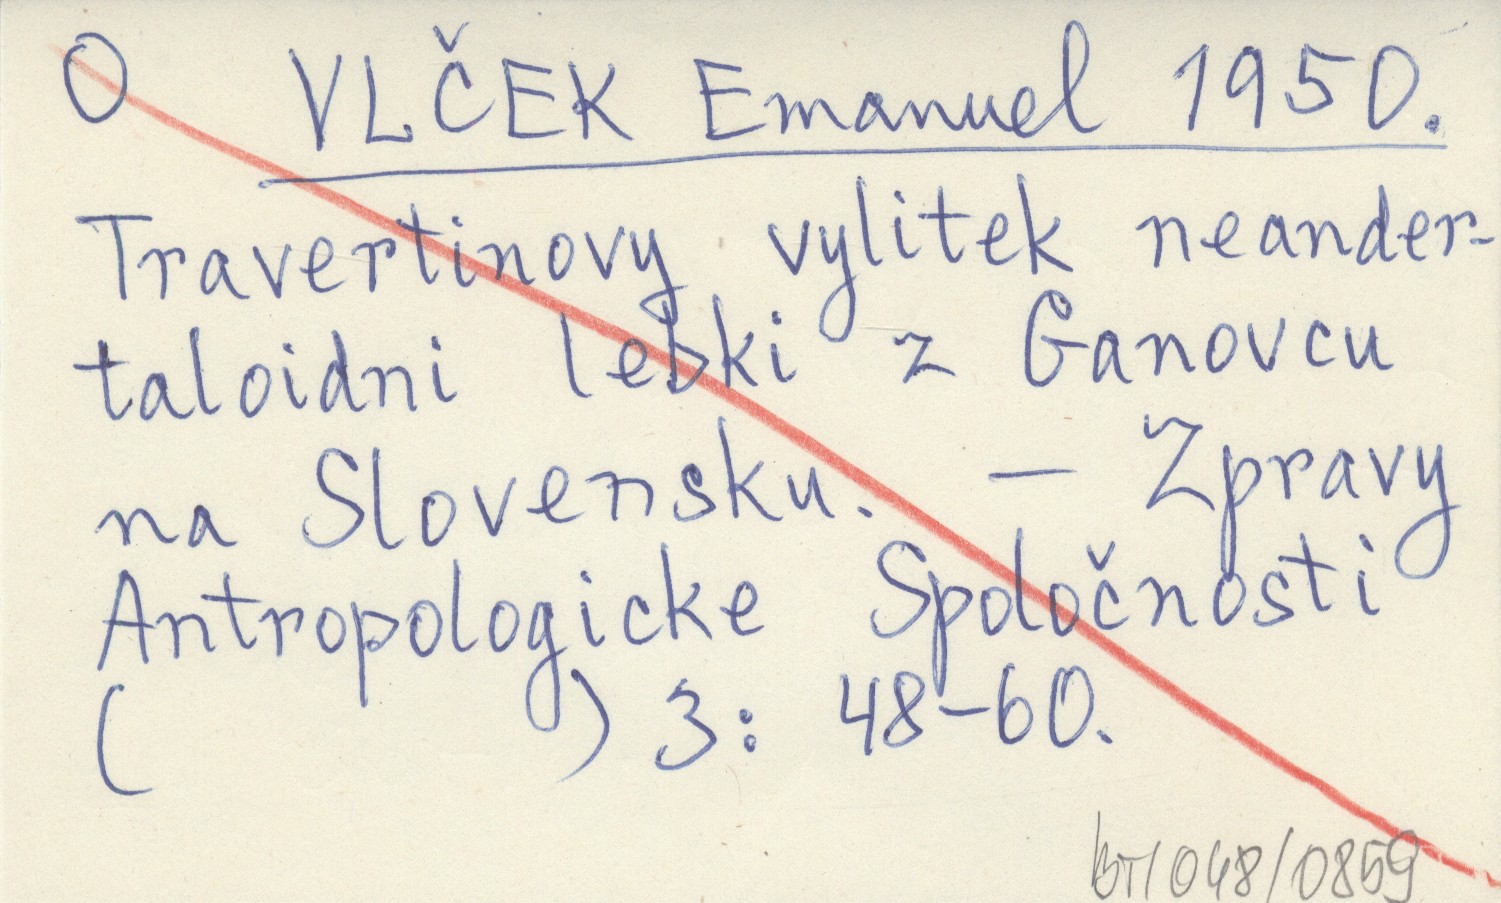 O VLČEK Emanuel 1950.
Travertinovy vylitek neander-
taloidni lebki z Ganovcu
na Slovensku. — Zpravy
Antropologicke Spoločnosti
( ) 3: 48-60.
BT/048/0859